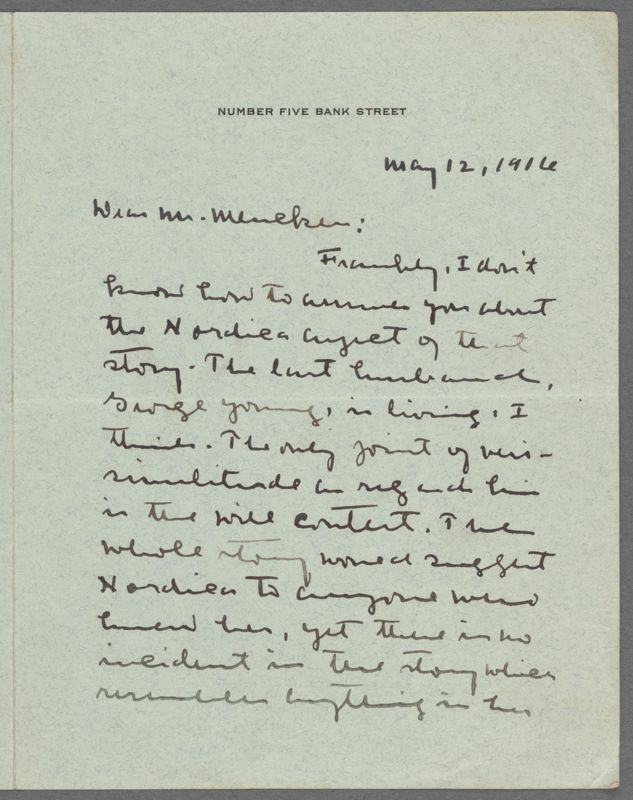 NUMBER FIVE BANK STREET
May 12, 1916
Dear Mr. Mencken:
Frankly, I don't
know how to answer you about
the Nordica aspect of that
story. The last husband,
George Young, is living, I
think. The only point of veri-
similitude as regards him
is the will contest. The
whole story would suggest
Nordica to anyone who
knew her, yet there is no
incident in the story which
resembles anything in her